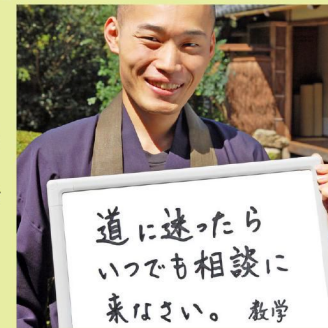 道に迷ったら
いつでも相談に
来なさい。 教学